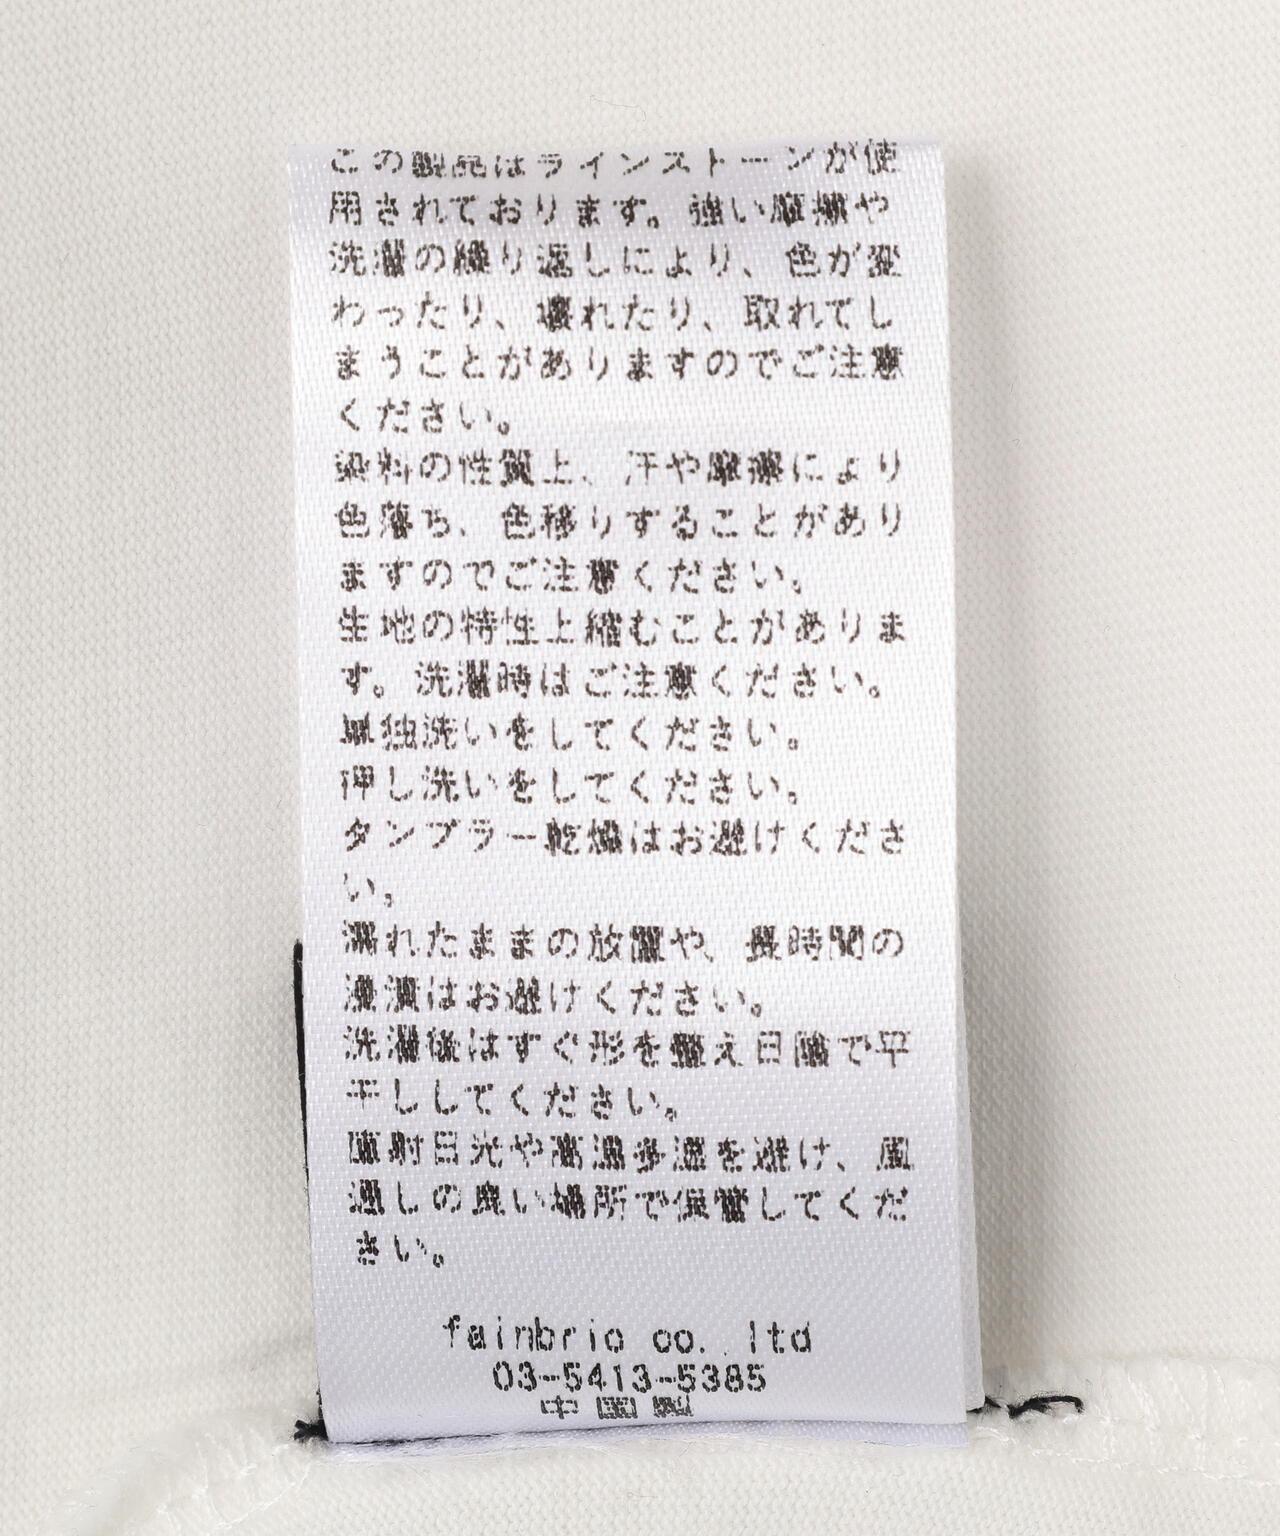 この製品はラインストーンが使
用されております。強い摩擦や
洗濯の繰り返しにより、色が変
わったり、壊れたり、取れてし
まうことがありますのでご注意
ください。
染料の性質上、汗や摩擦により
色落ち、色移りすることがあり
ますのでご注意ください。
生地の特性上縮むことがありま
す。洗濯時はご注意ください。
単独洗いをしてください。
押し洗いをしてください。
タンブラー乾燥はお避けくださ
い。
濡れたままの放置や、長時間の
浸漬はお避けください。
洗濯後はすぐ形を整え日陰で平
干ししてください。
直射日光や高温多湿を避け、風
通しの良い場所で保管してくだ
さい。
fainbrio co. ltd
03-5413-5385
中国製